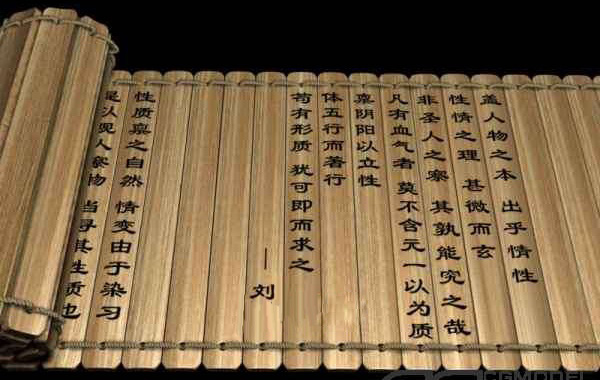 盖人物之本 出乎情性
性情之理 甚微而玄
非圣人之察 其孰能究之哉
凡有血气者 莫不含元一以为质
禀阴阳以立性
体五行而著行
苟有形质 犹可即而求之
—刘
性质禀之自然 情变由于染习
是以观人察物 当寻其性质也